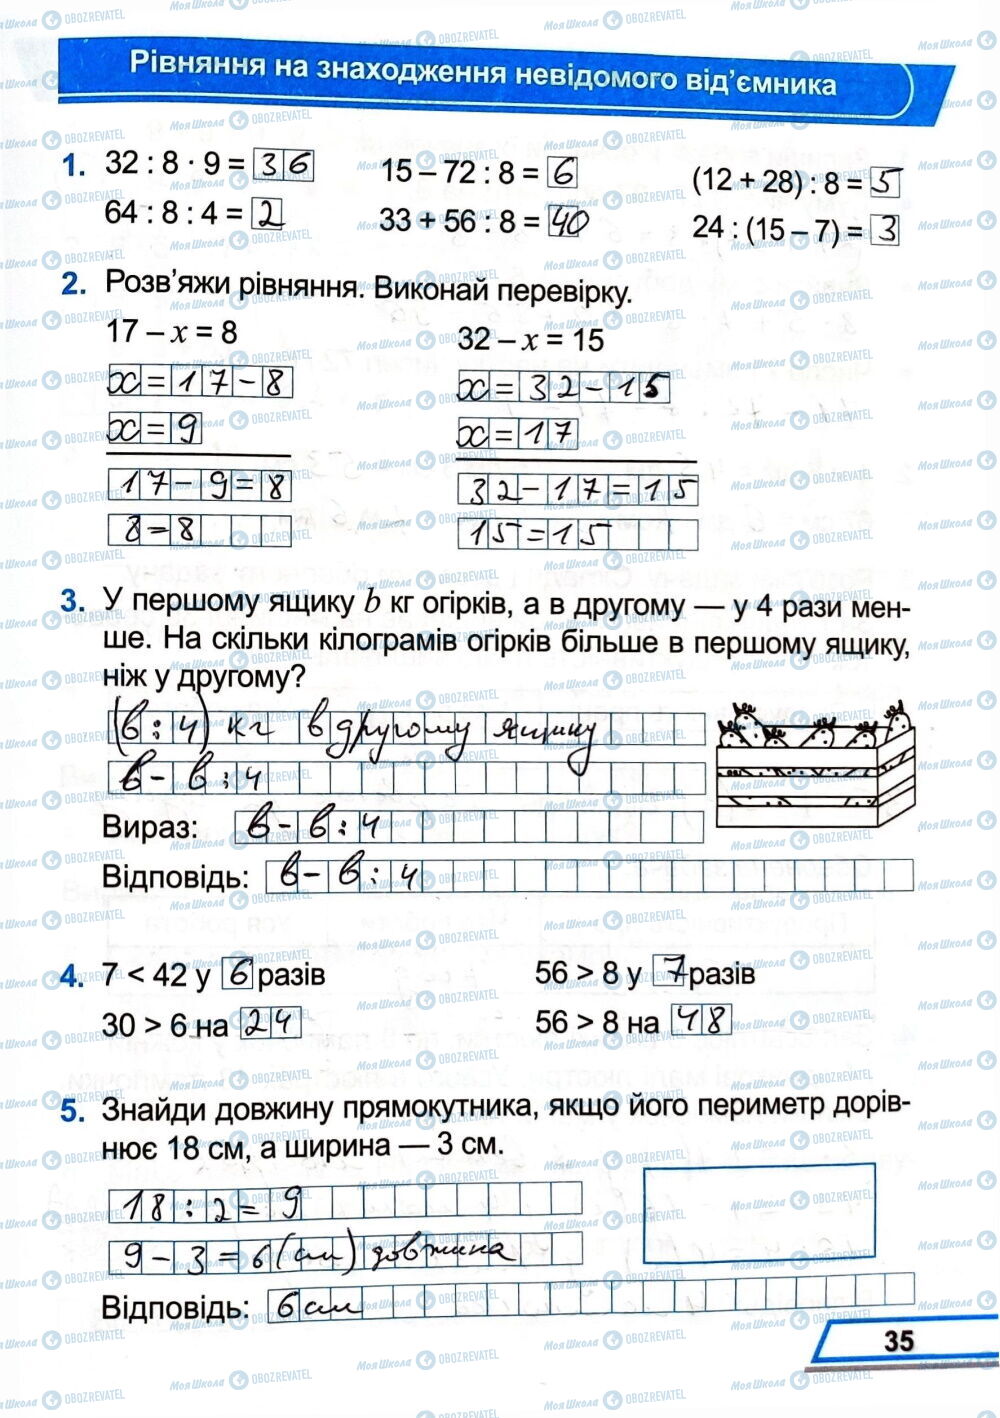 Рівняння на знаходження невідомого від’ємника
1. 32 : 8 · 9 = 36
15 – 72 : 8 = 6
(12 + 28) : 8 = 5
64 : 8 : 4 = 2
33 + 56 : 8 = 40
24 : (15 – 7) = 3
2. Розв’яжи рівняння. Виконай перевірку.
17 – x = 8
32 – x = 15
x = 17 - 8
x = 32 - 15
x = 9
x = 17
17 - 9 = 8
32 - 17 = 15
8 = 8
15 = 15
3. У першому ящику b кг огірків, а в другому — у 4 рази мен-
ше. На скільки кілограмів огірків більше в першому ящику,
ніж у другому?
(в : 4) кг в другому ящику
в - в : 4
Вираз: в - в : 4
Відповідь: в - в : 4
4. 7 < 42 у 6 разів
56 > 8 у 7 разів
30 > 6 на 24
56 > 8 на 48
5. Знайди довжину прямокутника, якщо його периметр дорів-
нює 18 см, а ширина — 3 см.
18 : 2 = 9
9 - 3 = 6 (см) довжина
Відповідь: 6 см
35
МояШкола OBOZREVATEL